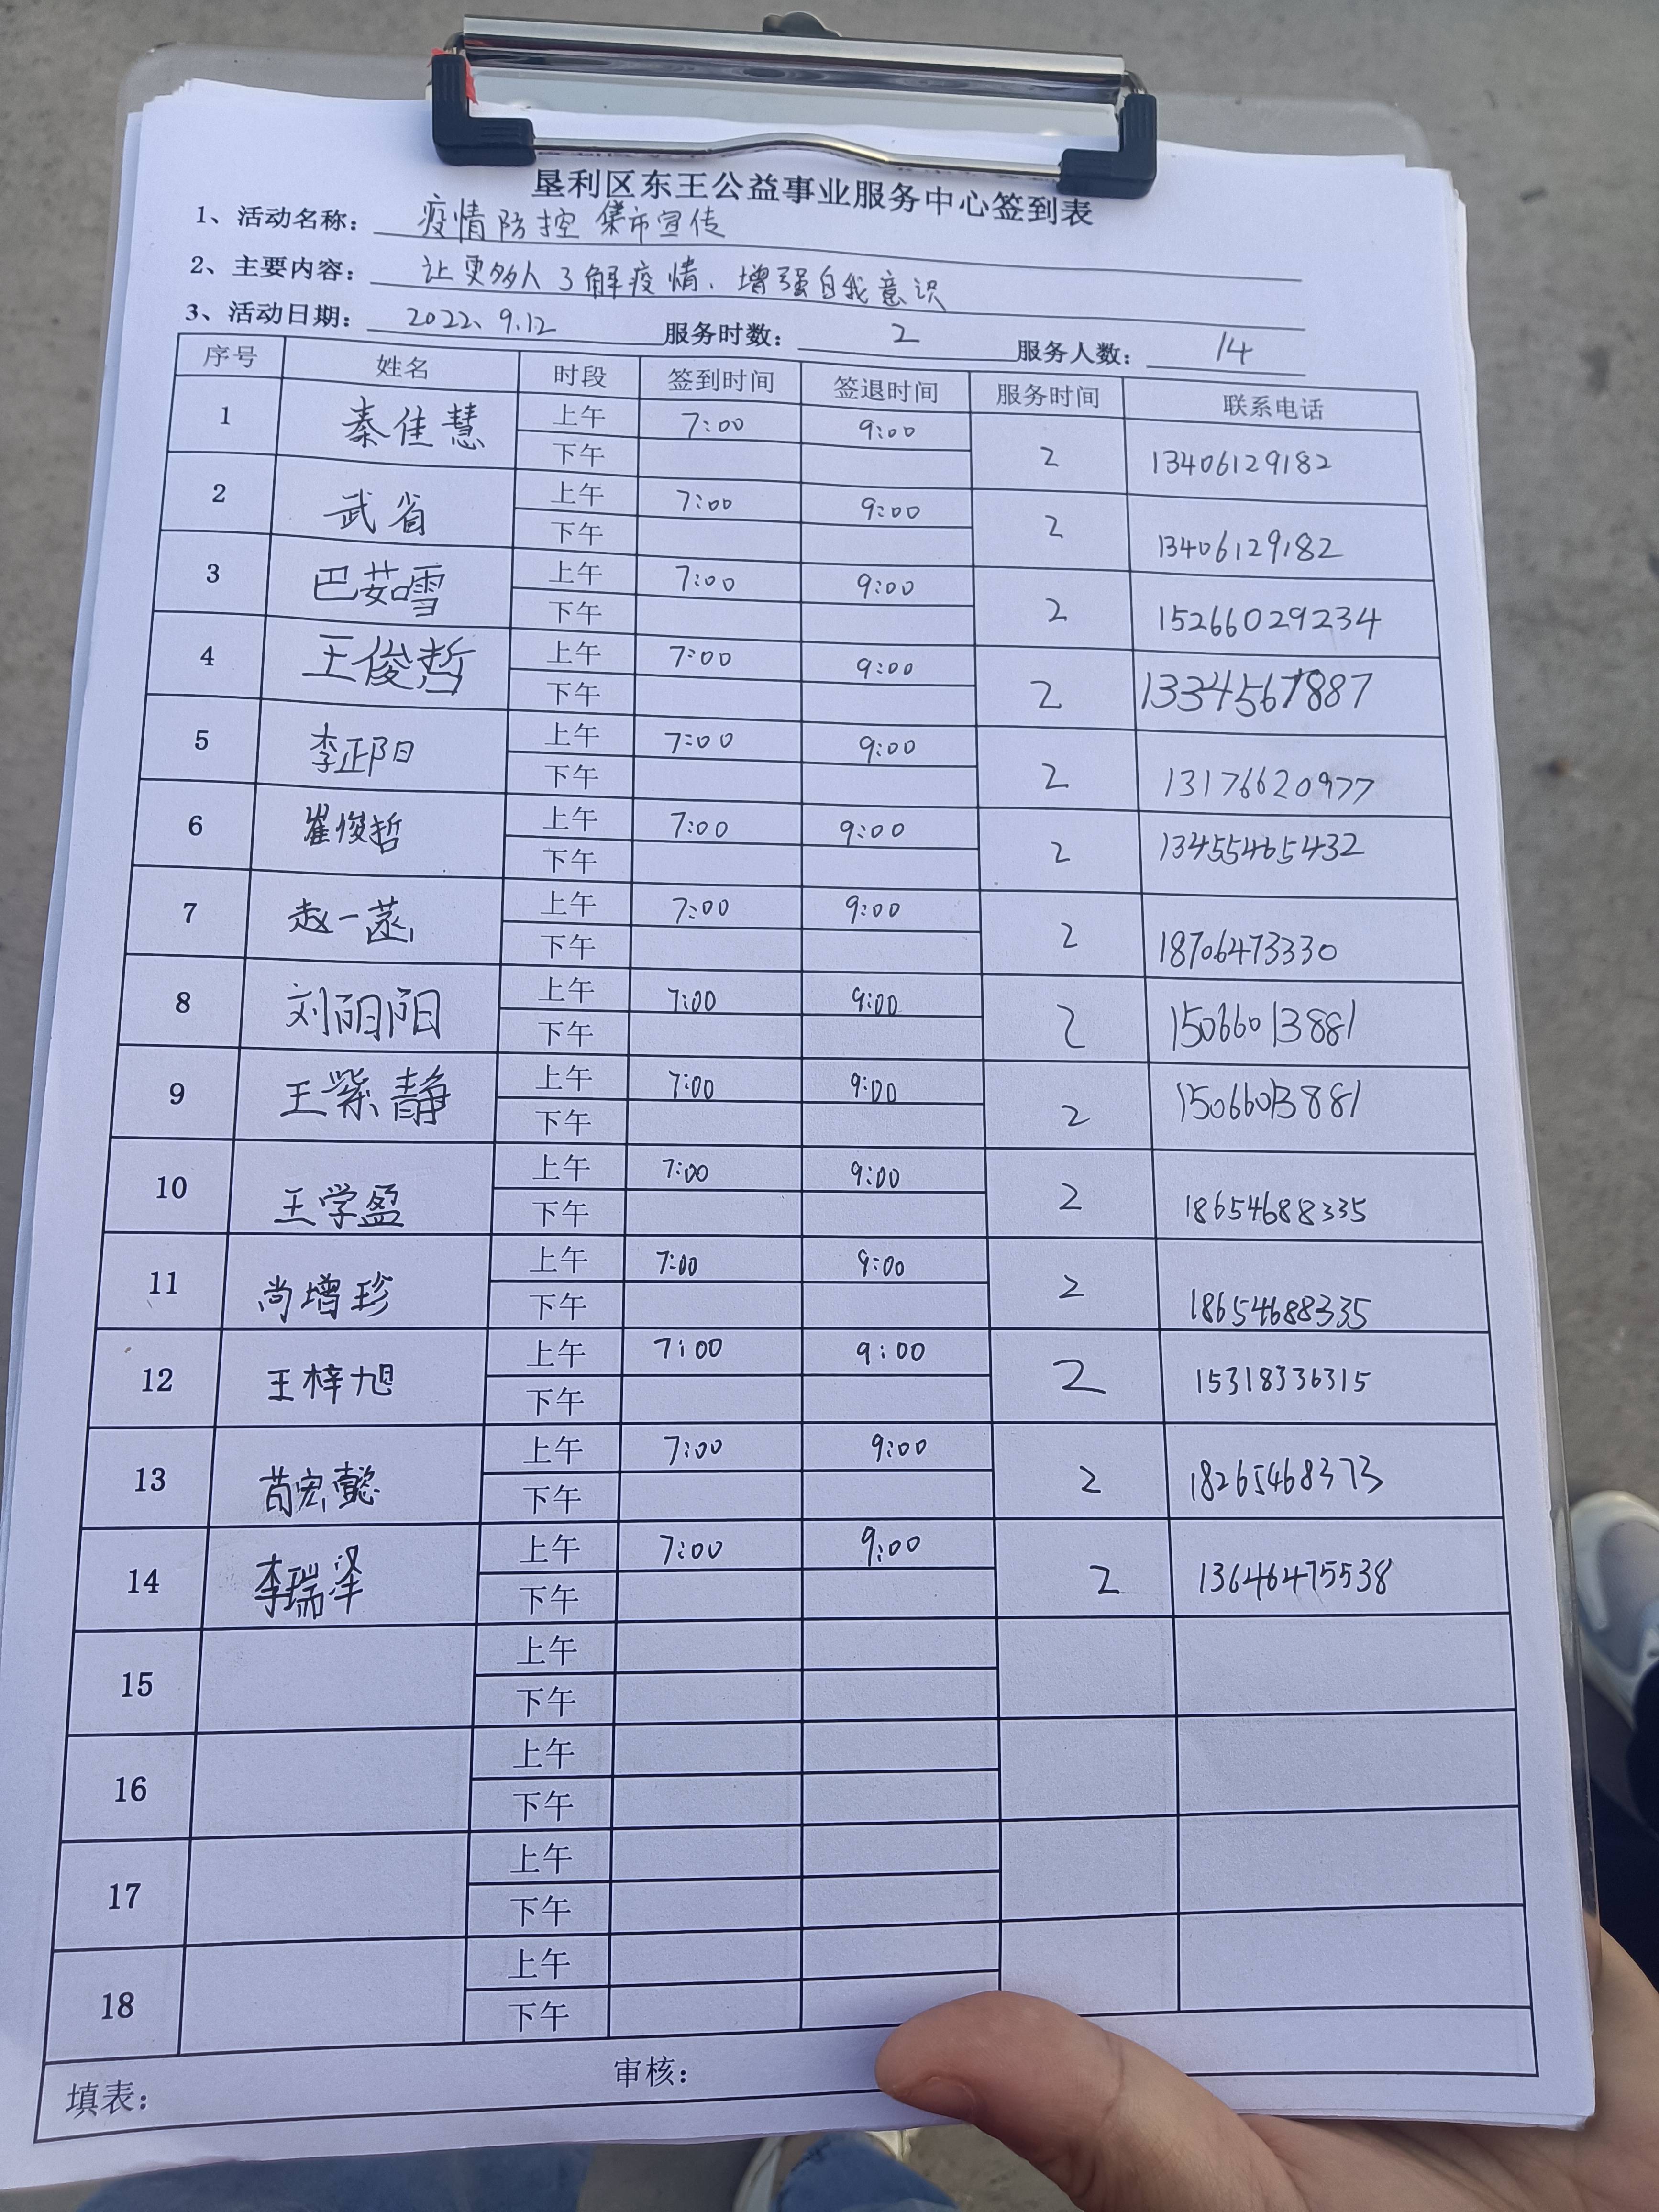 垦利区东王公益事业服务中心签到表
1、活动名称: 疫情防控 集市宣传
2、主要内容: 让更多人了解疫情、增强自我意识
3、活动日期: 2022、9.12 服务时数: 2 服务人数: 14
序号 姓名 时段 签到时间 签退时间 服务时间 联系电话
1 秦佳慧 上午 7:00 9:00 2 13406129182
下午
2 武省 上午 7:00 9:00 2 13406129182
下午
3 巴茹雪 上午 7:00 9:00 2 15266029234
下午
4 王俊哲 上午 7:00 9:00 2 13345671887
下午
5 李正阳 上午 7:00 9:00 2 13176620977
下午
6 崔俊哲 上午 7:00 9:00 2 13455465432
下午
7 赵一菡 上午 7:00 9:00 2 18706473330
下午
8 刘阳阳 上午 7:00 9:00 2 15066013881
下午
9 王紫静 上午 7:00 9:00 2 15066013881
下午
10 王学盈 上午 7:00 9:00 2 18654688335
下午
11 尚增珍 上午 7:00 9:00 2 18654688335
下午
12 王梓旭 上午 7:00 9:00 2 15318336315
下午
13 苗宏懿 上午 7:00 9:00 2 18265468373
下午
14 李瑞泽 上午 7:00 9:00 2 13646475538
下午
15 上午
下午
16 上午
下午
17 上午
下午
18 上午
下午
填表: 审核: